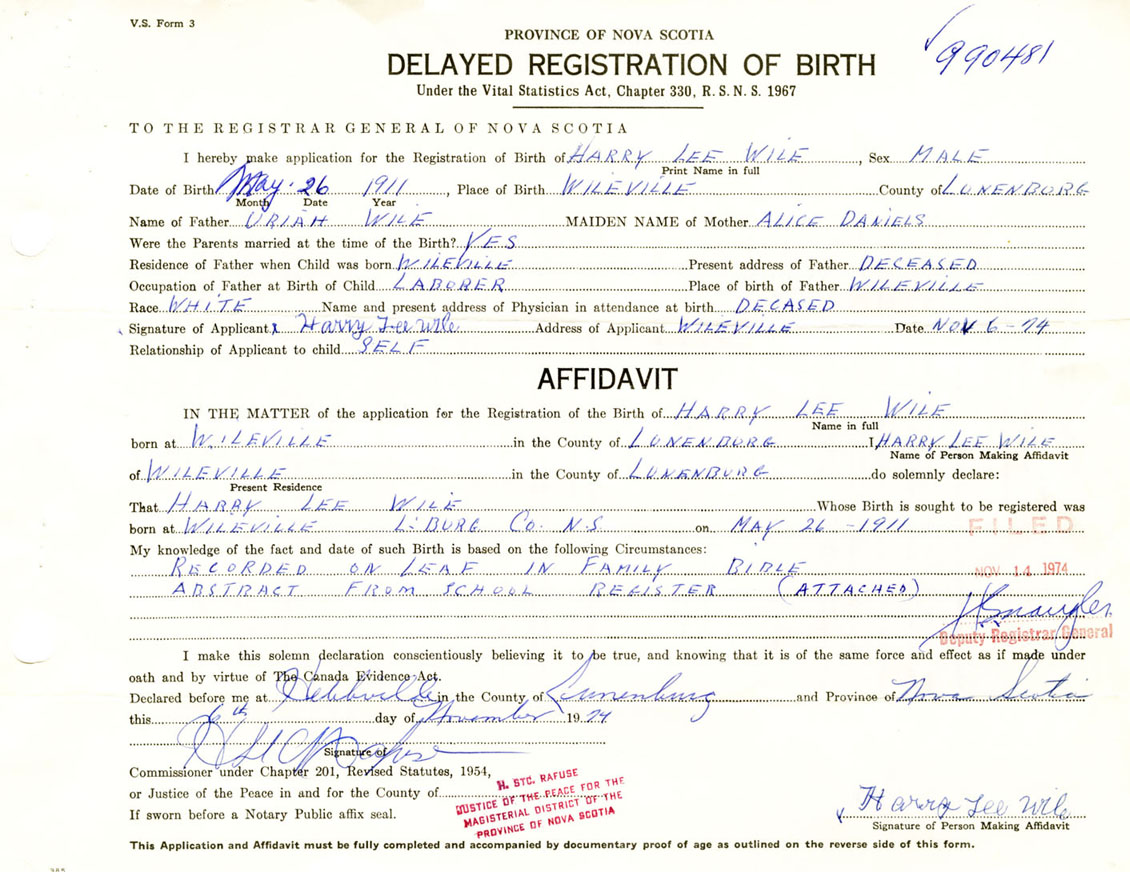 V.S. Form 3
PROVINCE OF NOVA SCOTIA
990481
DELAYED REGISTRATION OF BIRTH
Under the Vital Statistics Act, Chapter 330, R.S.N.S. 1967
TO THE REGISTRAR GENERAL OF NOVA SCOTIA
I hereby make application for the Registration of Birth of HARRY LEE WILE, Sex MALE
Print Name in full
Date of Birth May. 26 1911, Place of Birth WILEVILLE County of LUNENBORG
Month Date Year
Name of Father URIAH WILE MAIDEN NAME of Mother ALICE DANIELS
Were the Parents married at the time of the Birth? YES
Residence of Father when Child was born WILEVILLE Present address of Father DECEASED
Occupation of Father at Birth of Child LABORER Place of birth of Father WILEVILLE
Race WHITE Name and present address of Physician in attendance at birth DECASED
Signature of Applicant x Harry Lee Wile Address of Applicant WILEVILLE Date NOV 6-74
Relationship of Applicant to child SELF
AFFIDAVIT
IN THE MATTER of the application for the Registration of the Birth of HARRY LEE WILE
Name in full
born at WILEVILLE in the County of LUNENBURG I, HARRY LEE WILE
Name of Person Making Affidavit
of WILEVILLE in the County of LUNENBURG do solemnly declare:
Present Residence
That HARRY LEE WILE Whose Birth is sought to be registered was
born at WILEVILLE L. BURG CO. N.S on MAY 26 - 1911
FILED
My knowledge of the fact and date of such Birth is based on the following Circumstances:
RECORDED ON LEAF IN FAMILY BIBLE
NOV 14 1974
ABSTRACT FROM SCHOOL REGISTER (ATTACHED)
Deputy Registrar General
I make this solemn declaration conscientiously believing it to be true, and knowing that it is of the same force and effect as if made under
oath and by virtue of The Canada Evidence Act.
Declared before me at Hebbville in the County of Lunenburg and Province of Nova Scotia
this 6th day of November 1974
Signature of
Commissioner under Chapter 201, Revised Statutes, 1954,
or Justice of the Peace in and for the County of
If sworn before a Notary Public affix seal.
H. STC. RAFUSE
JUSTICE OF THE PEACE FOR THE
MAGISTERIAL DISTRICT OF THE
PROVINCE OF NOVA SCOTIA
Harry Lee Wile
Signature of Person Making Affidavit
This Application and Affidavit must be fully completed and accompanied by documentary proof of age as outlined on the reverse side of this form.